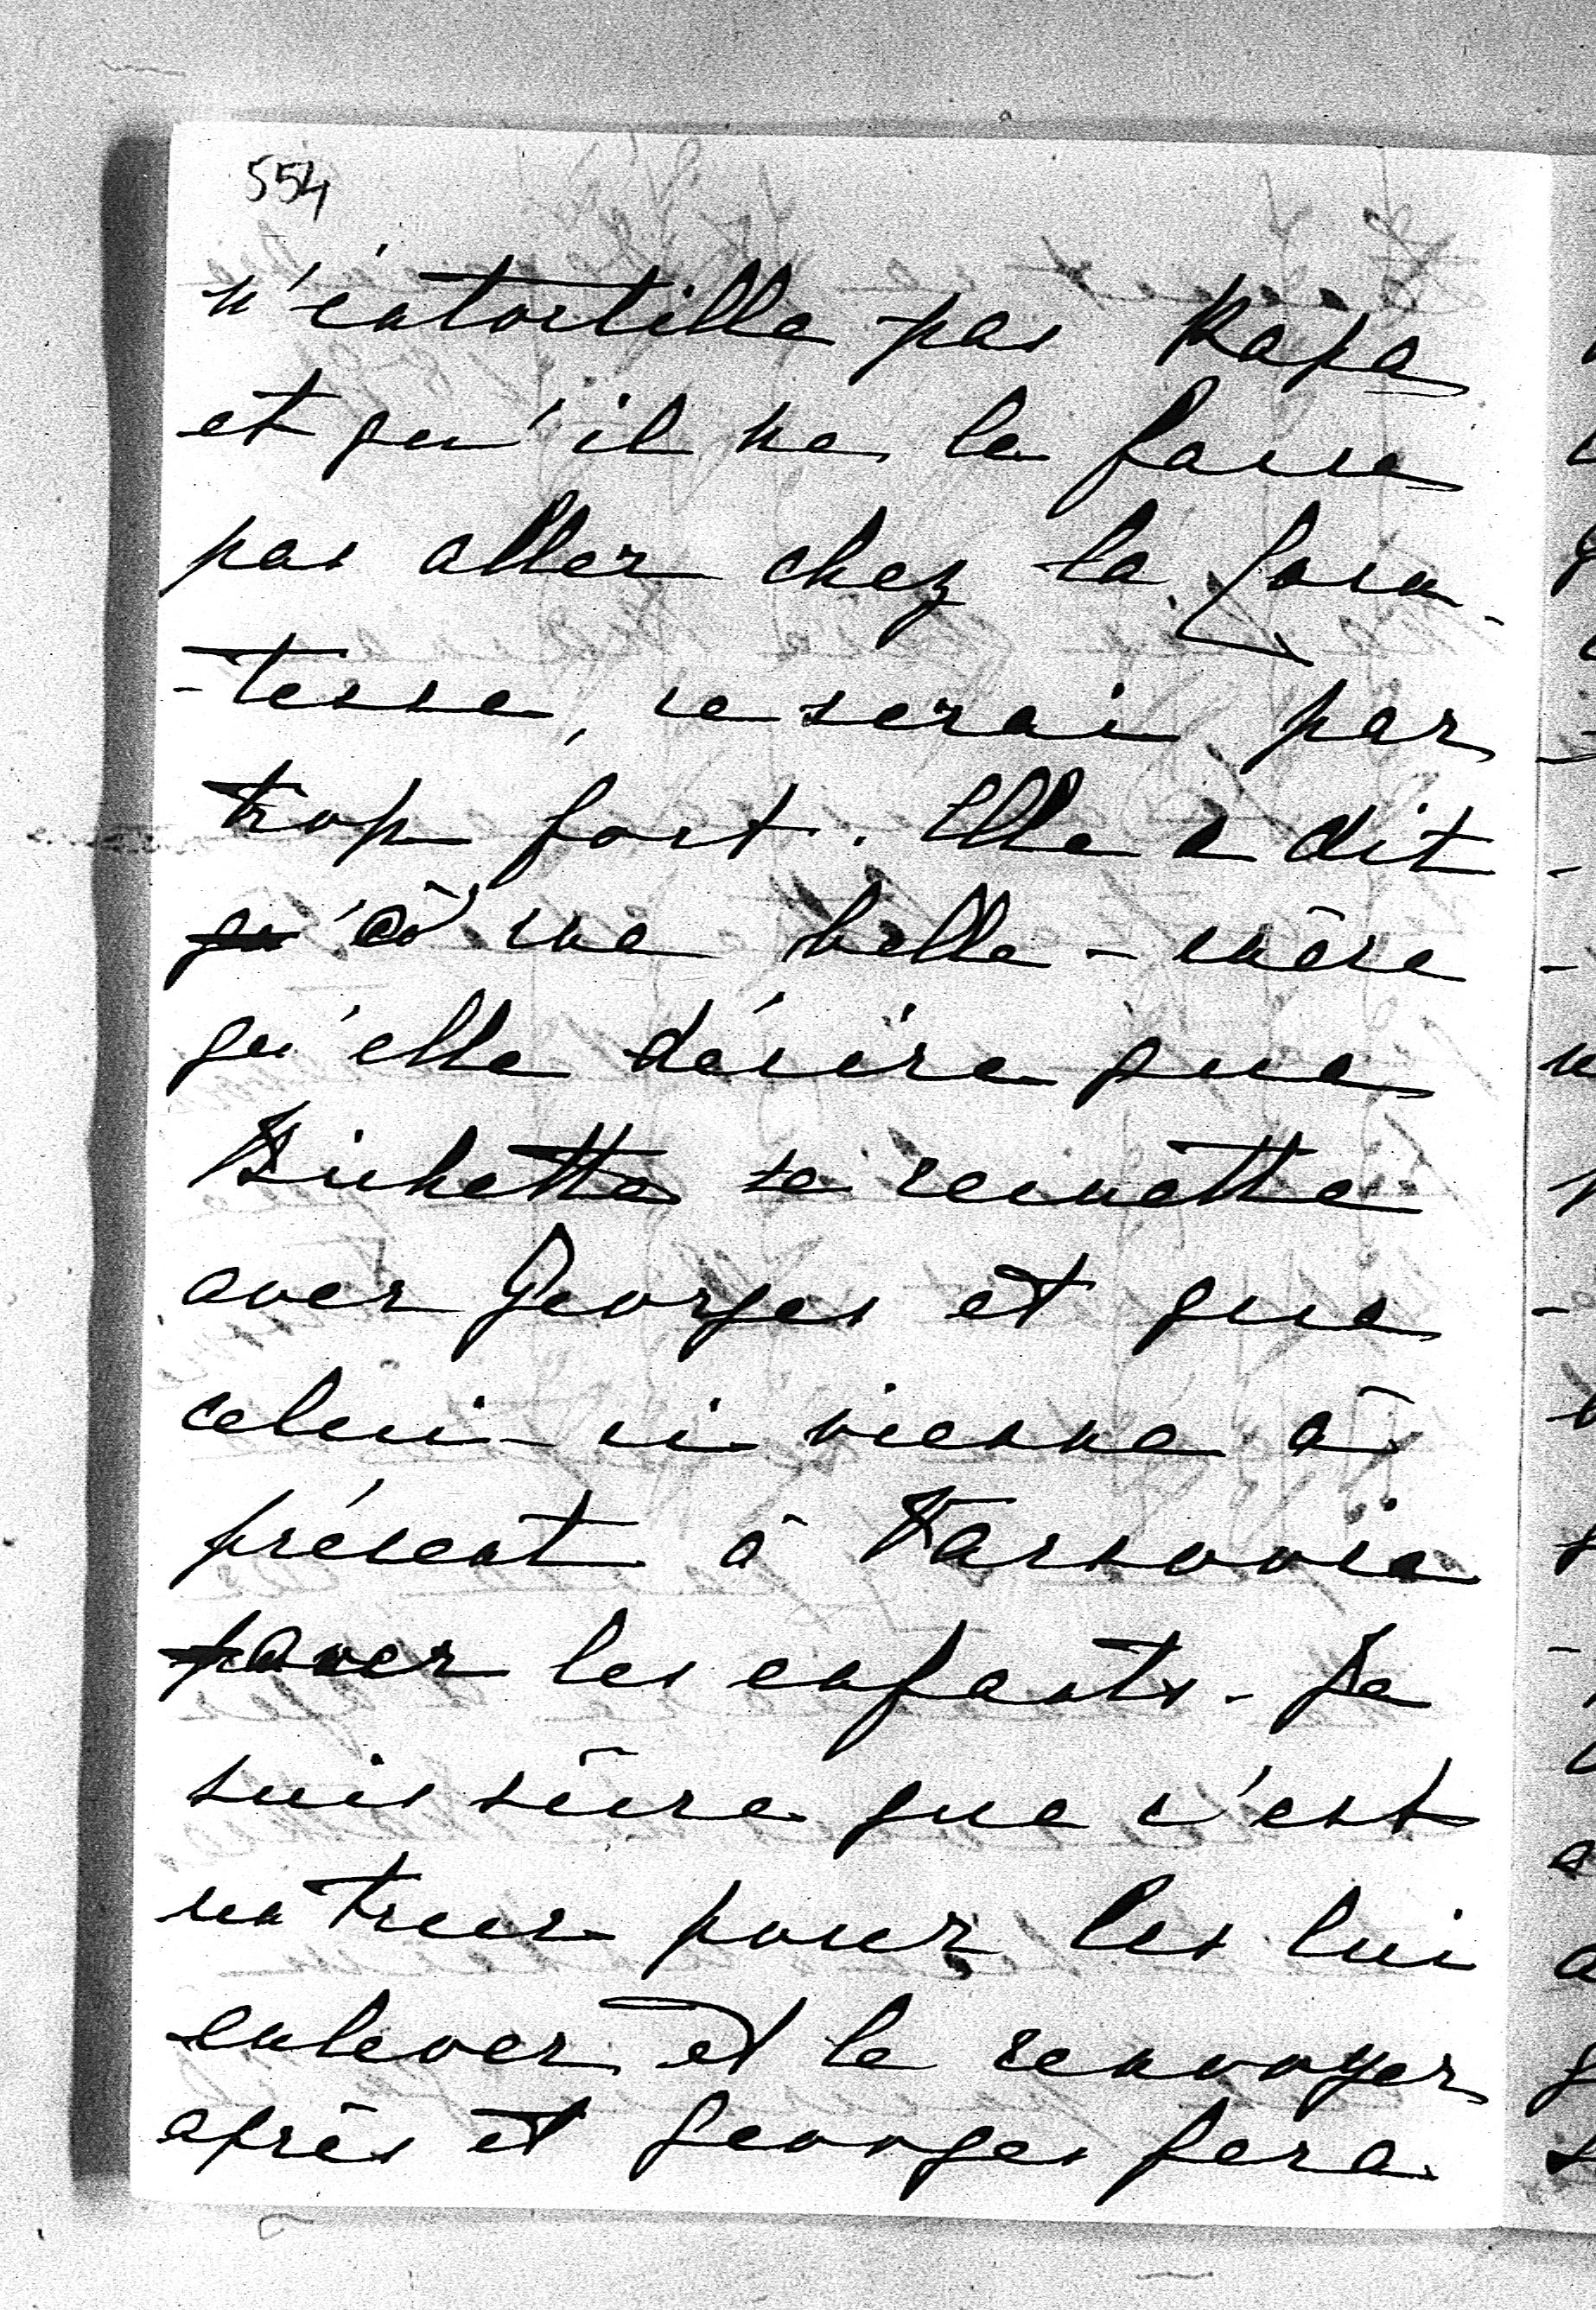 554
n'entortille pas Papa
et qu'il ne le fasse
pas aller chez la Com-
-tesse, ce serai par
trop fort. Elle a dit
qu'à ma belle-mère
qu'elle désire que
Bichette se remette
avec Georges et que
celui-ci vienne à
présent à Varsovie
avec les enfants. Je
suis sûre que c'est
un truc pour les lui
enlever et le renvoyer
après et Georges fera